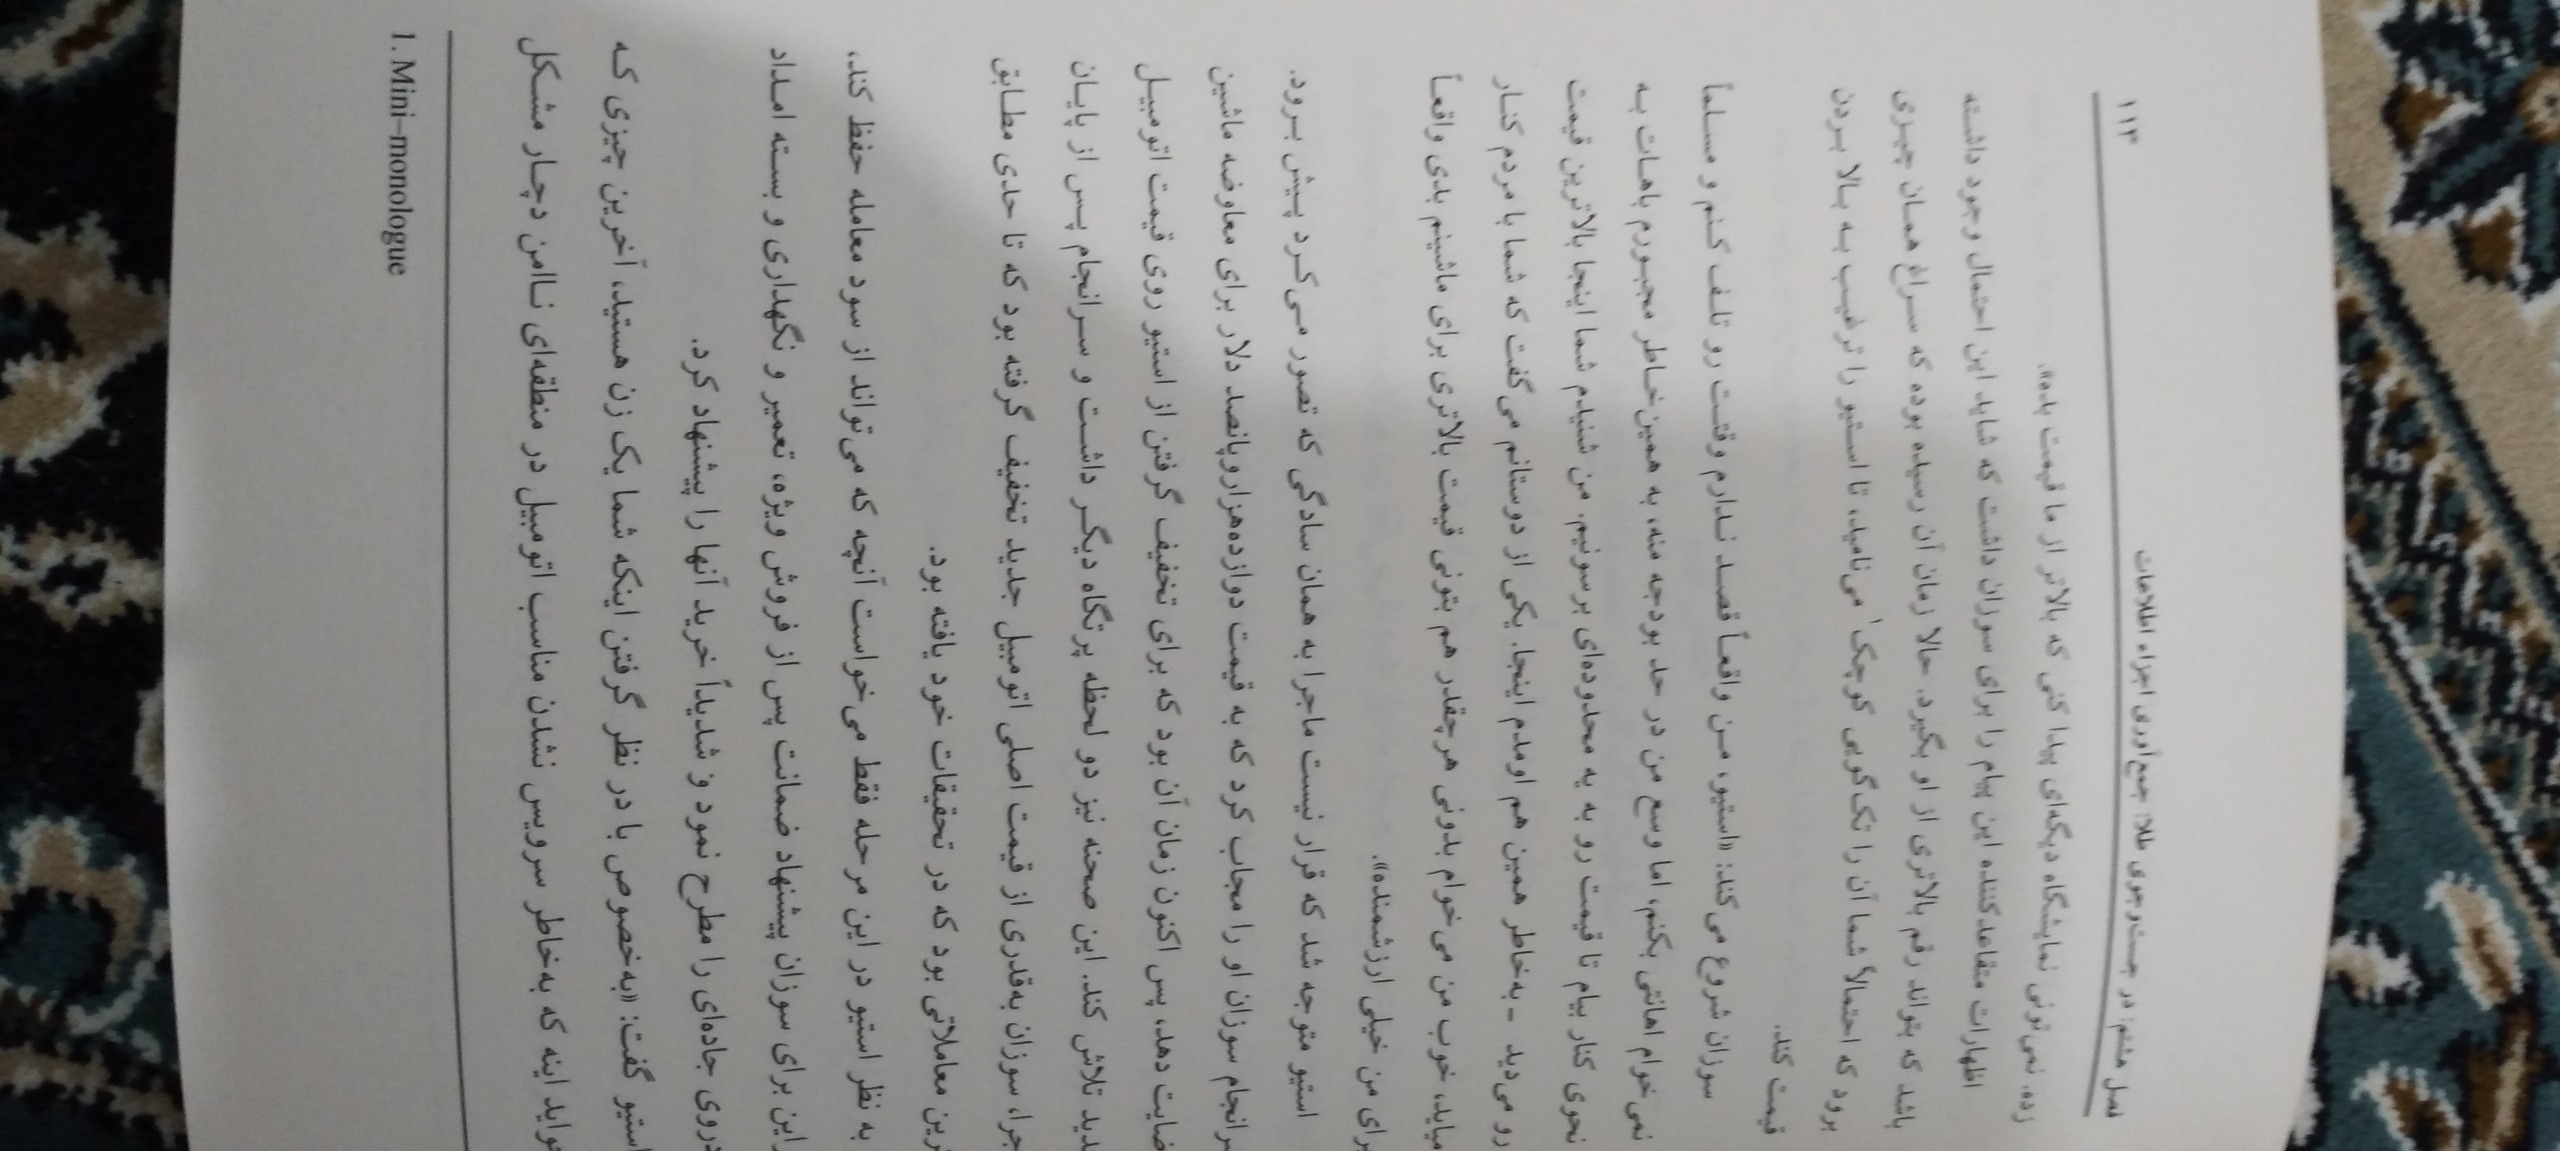 فصل هشتم: در جست‌وجوی طلا: جمع‌آوری اجزاء اطلاعات ۱۱۳
زده. نمی‌تونی نمایشگاه دیگه‌ای پیدا کنی که بالاتر از ما قیمت بده».
اظهارات متقاعدکننده این پیام را برای سوزان داشت که شاید این احتمال وجود داشته
باشد که بتواند رقم بالاتری از او بگیرد. حالا زمان آن رسیده بوده که سراغ همان چیزی
برود که احتمالاً شما آن را تک‌گویی کوچک۱ می‌نامید، تا استیو را ترغیب به بالا بردن
قیمت کند.
سوزان شروع می‌کند: «استیو، من واقعاً قصد ندارم وقتت رو تلف کنم و مسلماً
نمی‌خوام اهانتی بکنم، اما وسع من در حد بودجه منه، به همین‌خاطر مجبورم باهات به
نحوی کنار بیام تا قیمت رو به یه محدوده‌ای برسونیم. من شنیدم شما اینجا بالاترین قیمت
رو می‌دید - به‌خاطر همین هم اومدم اینجا. یکی از دوستانم می‌گفت که شما با مردم کنار
میاید، خوب من می‌خوام بدونی هرچقدر هم بتونی قیمت بالاتری برای ماشینم بدی واقعاً
برای من خیلی ارزشمنده».
استیو متوجه شد که قرار نیست ماجرا به همان سادگی که تصور می‌کرد پیش برود.
سرانجام سوزان او را مجاب کرد که به قیمت دوازده‌هزاروپانصد دلار برای معاوضه ماشین
ضایت دهد، پس اکنون زمان آن بود که برای تخفیف گرفتن از استیو روی قیمت اتومبیل
دید تلاش کند. این صحنه نیز دو لحظه پرتگاه دیگر داشت و سرانجام پس از پایان
جرا، سوزان به‌قدری از قیمت اصلی اتومبیل جدید تخفیف گرفته بود که تا حدی مطابق
رین معاملاتی بود که در تحقیقات خود یافته بود.
به نظر استیو در این مرحله فقط می‌خواست آنچه که می‌تواند از سود معامله حفظ کند،
راین برای سوزان پیشنهاد ضمانت پس از فروش ویژه، تعمیر و نگهداری و بسته امداد
دروی جاده‌ای را مطرح نمود و شدیداً خرید آنها را پیشنهاد کرد.
استیو گفت: «به‌خصوص با در نظر گرفتن اینکه شما یک زن هستید، آخرین چیزی که
واید اینه که به‌خاطر سرویس نشدن مناسب اتومبیل در منطقه‌ای ناامن دچار مشکل
1. Mini-monologue